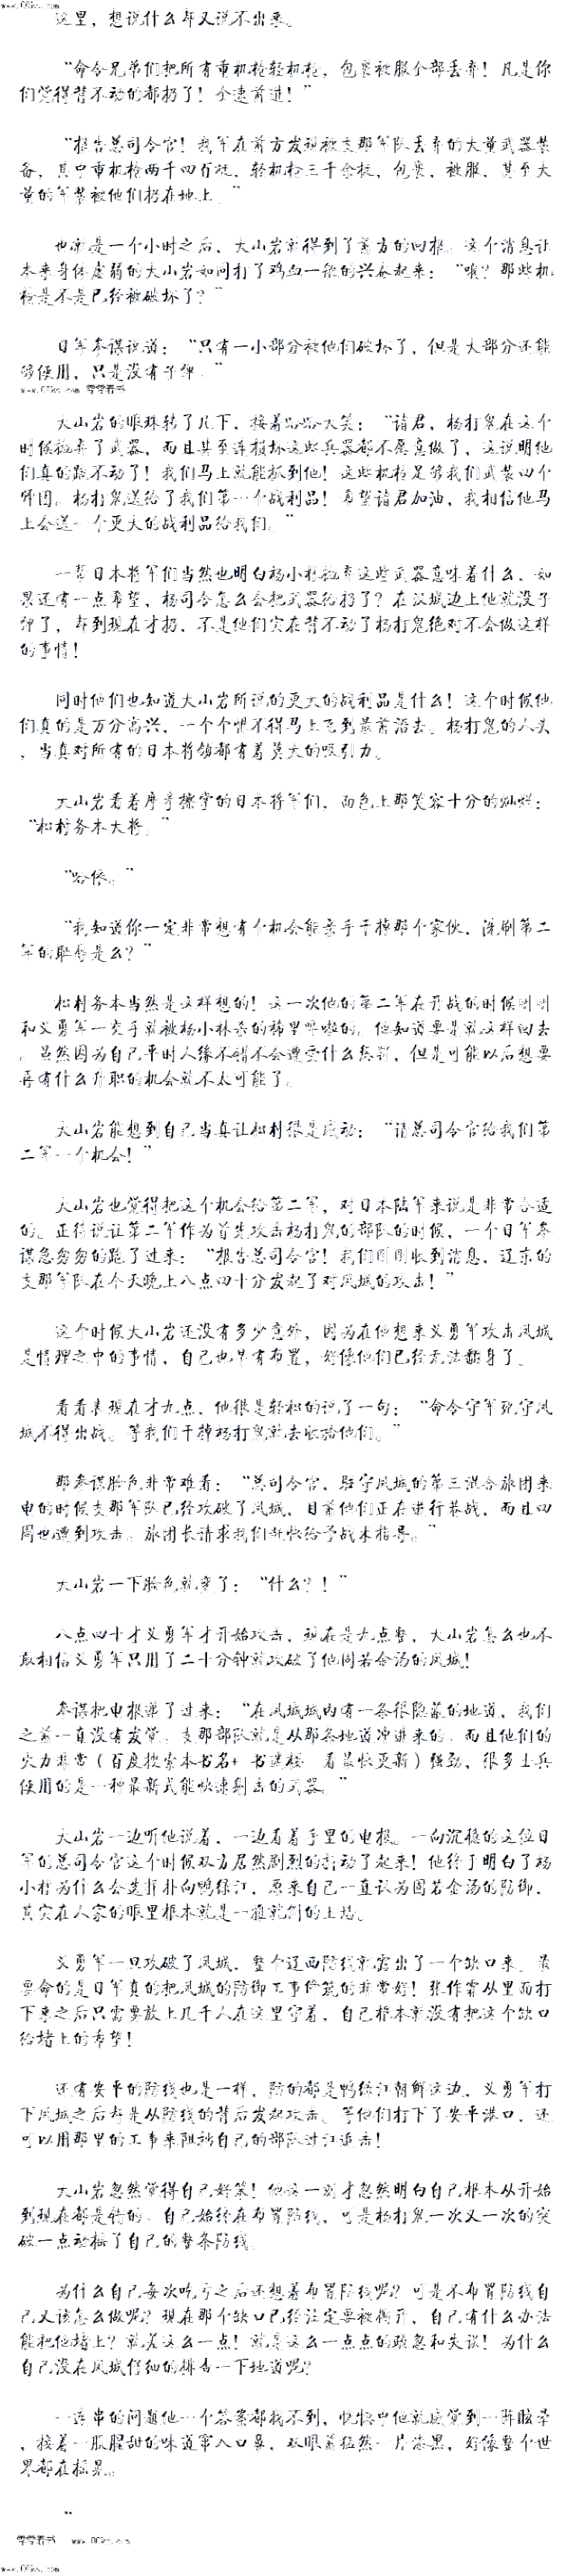 www.00ks.com
这里，想说什么却又说不出来。
“命令兄弟们把所有重机枪轻机枪，包裹被服全部丢弃！凡是你
们觉得背不动的都扔了！全速前进！”
“报告总司令官！我军在前方发现被支那军队丢弃的大量武器装
备，其中重机枪两千四百挺，轻机枪三千余挺，包裹，被服，甚至大
量的军装被他们扔在地上。”
也就是一个小时之后，大山岩就得到了前方的回报。这个消息让
本来身体虚弱的大山岩如同打了鸡血一般的兴奋起来：“哦？那些机
枪是不是已经被破坏了？”
日军参谋说道：“只有一小部分被他们破坏了，但是大部分还能
够使用，只是没有子弹。”
www.00ks.com 零零看书
大山岩的眼珠转了几下，接着哈哈大笑：“诸君，杨打鬼在这个
时候抛弃了武器，而且甚至连损坏这些兵器都不愿意做了，这说明他
们真的跑不动了！我们马上就能抓到他！这些机枪足够我们武装四个
师团。杨打鬼送给了我们第一个战利品！希望诸君加油，我相信他马
上会送一个更大的战利品给我们。”
一帮日本将军们当然也明白杨小林抛弃这些武器意味着什么，如
果还有一点希望，杨司令怎么会把武器给扔了？在汉城边上他就没子
弹了，却到现在才扔，不是他们实在背不动了杨打鬼绝对不会做这样
的事情！
同时他们也知道大山岩所说的更大的战利品是什么！这个时候他
们真的是万分高兴，一个个恨不得马上飞到最前沿去。杨打鬼的人头
，当真对所有的日本将领都有着莫大的吸引力。
大山岩看着摩拳擦掌的日本将军们，面色上那笑容十分的灿烂：
“松村务本大将。”
“哈依。”
“我知道你一定非常想有个机会能亲手干掉那个家伙，洗刷第二
军的耻辱是么？”
松村务本当然是这样想的！这一次他的第二军在开战的时候刚刚
和义勇军一交手就被杨小林杀的稀里哗啦的。他知道要是就这样回去
，虽然因为自己平时人缘不错不会遭受什么惩罚，但是可能以后想要
再有什么升职的机会就不太可能了。
大山岩能想到自己当真让松村很是感动：“请总司令官给我们第
二军一个机会！”
大山岩也觉得把这个机会给第二军，对日本陆军来说是非常合适
的。正待说让第二军作为首先攻击杨打鬼的部队的时候，一个日军参
谋急匆匆的跑了过来：“报告总司令官！我们刚刚收到消息，辽东的
支那军队在今天晚上八点四十分发起了对凤城的攻击！”
这个时候大山岩还没有多少意外，因为在他想来义勇军攻击凤城
是情理之中的事情，自己也早有布置，好像他们已经无法翻身了。
看看表现在才九点，他很是轻松的说了一句：“命令守军死守凤
城不得出战。等我们干掉杨打鬼就去收拾他们。”
那参谋脸色非常难看：“总司令官，驻守凤城的第三混合旅团来
电的时候支那军队已经攻破了凤城，目前他们正在进行巷战，而且四
周也遭到攻击。旅团长请求我们赶快给予战术指导。”
大山岩一下脸色就变了：“什么？！”
八点四十才义勇军才开始攻击，现在是九点整，大山岩怎么也不
敢相信义勇军只用了二十分钟就攻破了他固若金汤的凤城！
参谋把电报递了过来：“在凤城城内有一条很隐蔽的地道，我们
之前一直没有发觉。支那部队就是从那条地道冲进来的，而且他们的
火力非常（百度搜索本书名+ 书迷楼 看最快更新）强劲，很多士兵
使用的是一种最新式能快速射击的武器。”
大山岩一边听他说着，一边看着手里的电报。一向沉稳的这位日
军的总司令官这个时候双方居然剧烈的抖动了起来！他终于明白了杨
小林为什么会选择扑向鸭绿江，原来自己一直认为固若金汤的防御，
其实在人家的眼里根本就是一推就倒的土墙。
义勇军一旦攻破了凤城，整个辽西防线就露出了一个缺口来。最
要命的是日军真的把凤城的防御工事修筑的非常好！张作霖从里面打
下来之后只需要放上几千人在这里守着，自己根本就没有把这个缺口
给堵上的希望！
还有安平的防线也是一样，防的都是鸭绿江朝鲜这边，义勇军打
下凤城之后却是从防线的背后发起攻击。等他们打下了安平港口，还
可以用那里的工事来阻挡自己的部队过江追击！
大山岩忽然觉得自己好笨！他这一刻才忽然明白自己根本从开始
到现在都是错的，自己始终在布置防线，可是杨打鬼一次又一次的突
破一点动摇了自己的整条防线。
为什么自己每次吃亏之后还想着布置防线呢？可是不布置防线自
己又该怎么做呢？现在那个缺口已经注定要被撕开，自己有什么办法
能把他堵上？就差这么一点！就是这么一点点的疏忽和失误！为什么
自己没在凤城仔细的排查一下地道呢？
一连串的问题他一个答案都找不到，恍惚中他就感觉到一阵眩晕
，接着一股腥甜的味道窜入口鼻，双眼前猛然一片漆黑，好像整个世
界都在摇晃。
“
零零看书 www.00ks.com
www.00ks.com